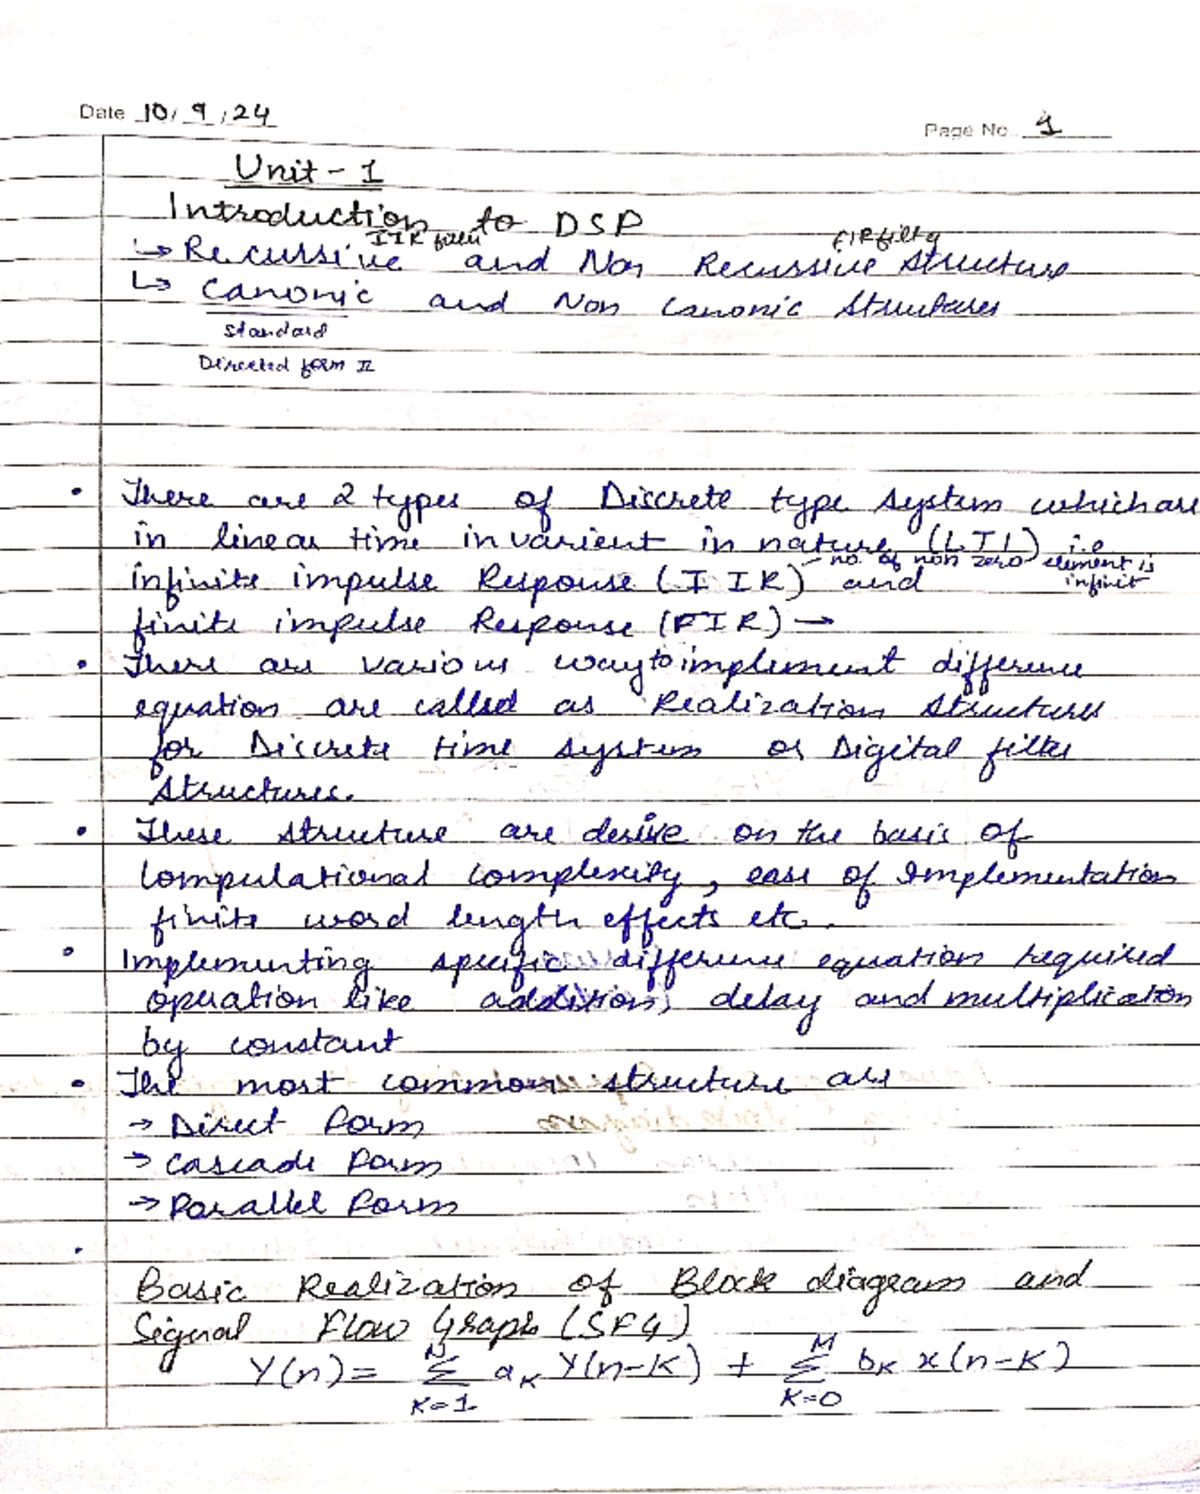 Date 10/9/24
Page No. 1
Unit-1
Introduction to DSP
IIR filter
FIR filter
↳ Recursive and Non Recussive Structure
↳ Canonic and Non Canonic Structures
Standard
Directed form II
• There are 2 types of Discrete type system which are
in linear time invarient in nature (LTI) i.e
no. of non zero element is
infinit
infinite impulse Response (IIR) and
finite impulse Response (FIR) →
• There are various way to implement difference
equation are called as Realization Structures
for Discrete time system or Digital filter
structures.
• These structure are desive on the basis of
Computational complexity, ease of Implementation
finite word length effects etc.
• Implementing specific difference equation required
operation like addition, delay and multiplication
by constant
• The most common structure are
→ Direct form
→ Cascade form
→ Parallel form
•
Basic Realization of Block diagram and
Signal Flow Graph (SFG)
Y(n) = N Σ K=1 aK Y(n-K) + M Σ K=0 bK x(n-K)